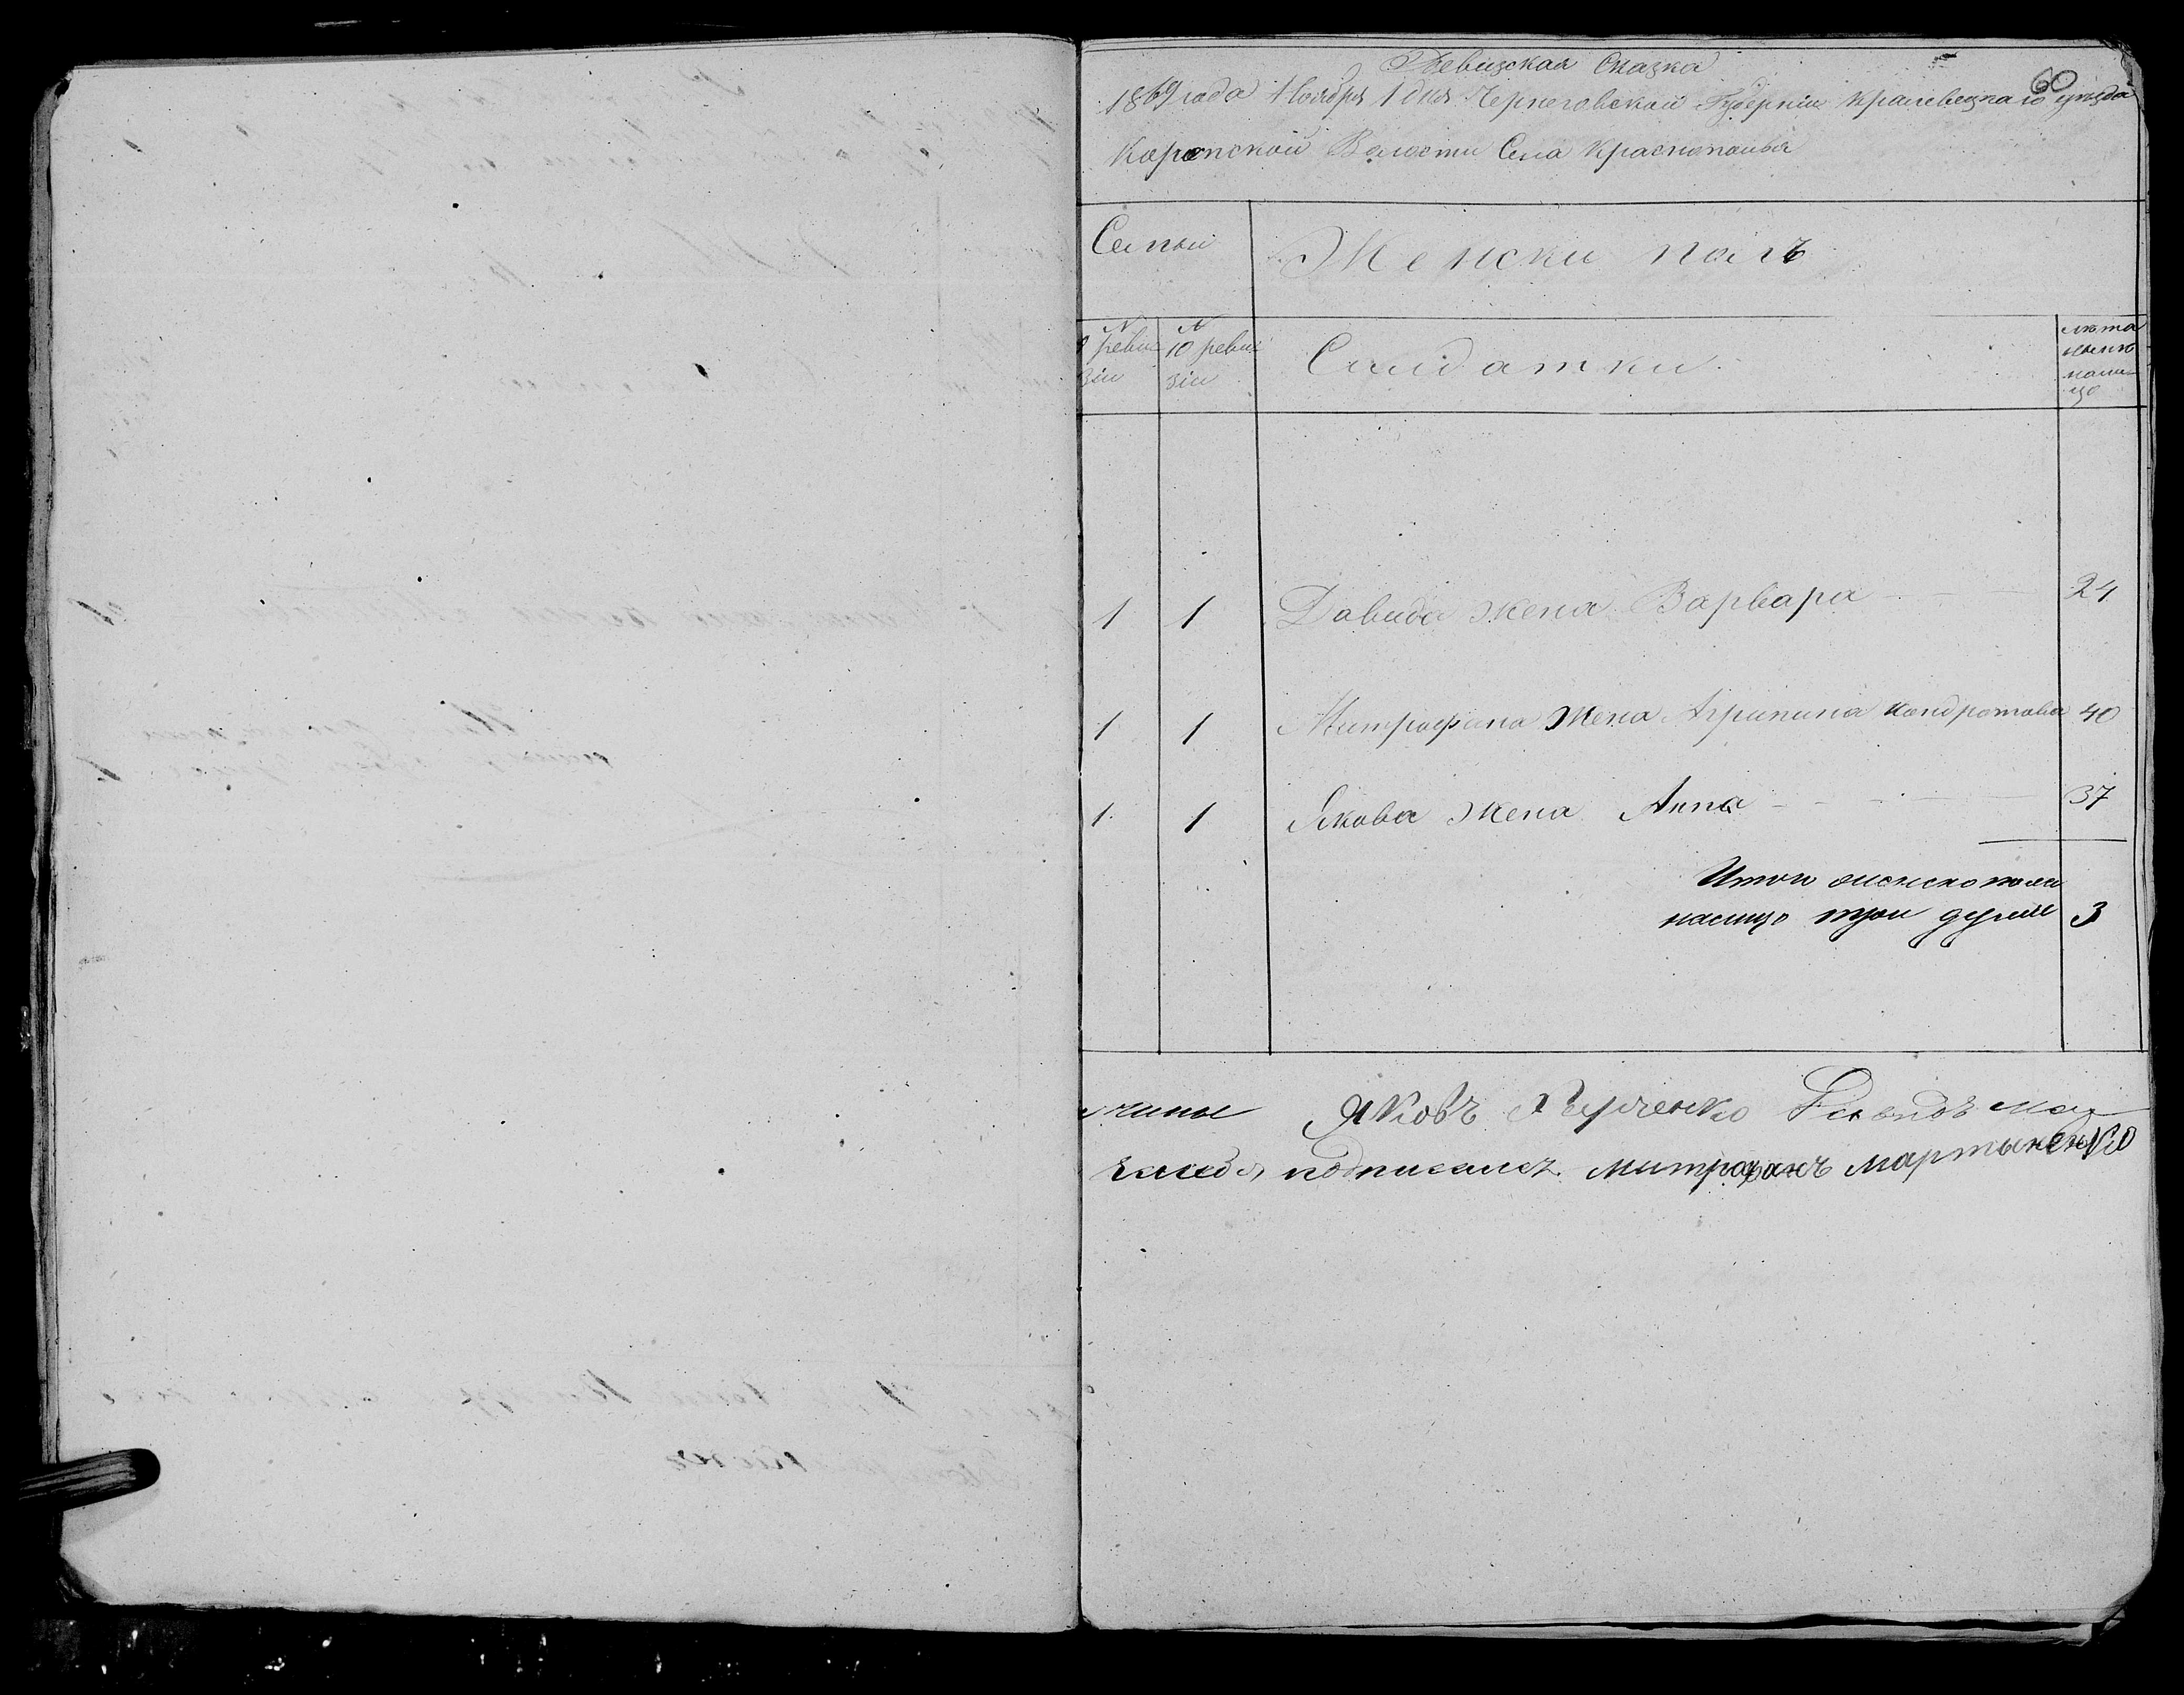 60
Ревизская Сказка
1869 года Ноября 1 дня Черниговской Губернии Кралевецкаго уезда
Коропской Волости Села Краснополья
Семьи
Женски полъ
N
ревизіи
N
10 ревизіи
Салдатки
лета
1 1 Давида жена Варвара 24
1 1 Митрофана Жена Агрипина Кондратова 40
1 1 Якова Жена Анна 37
Итого женского пола
налицо трои душы 3
Яковъ Харченко
подписалсь Митрофанъ Мартыненко